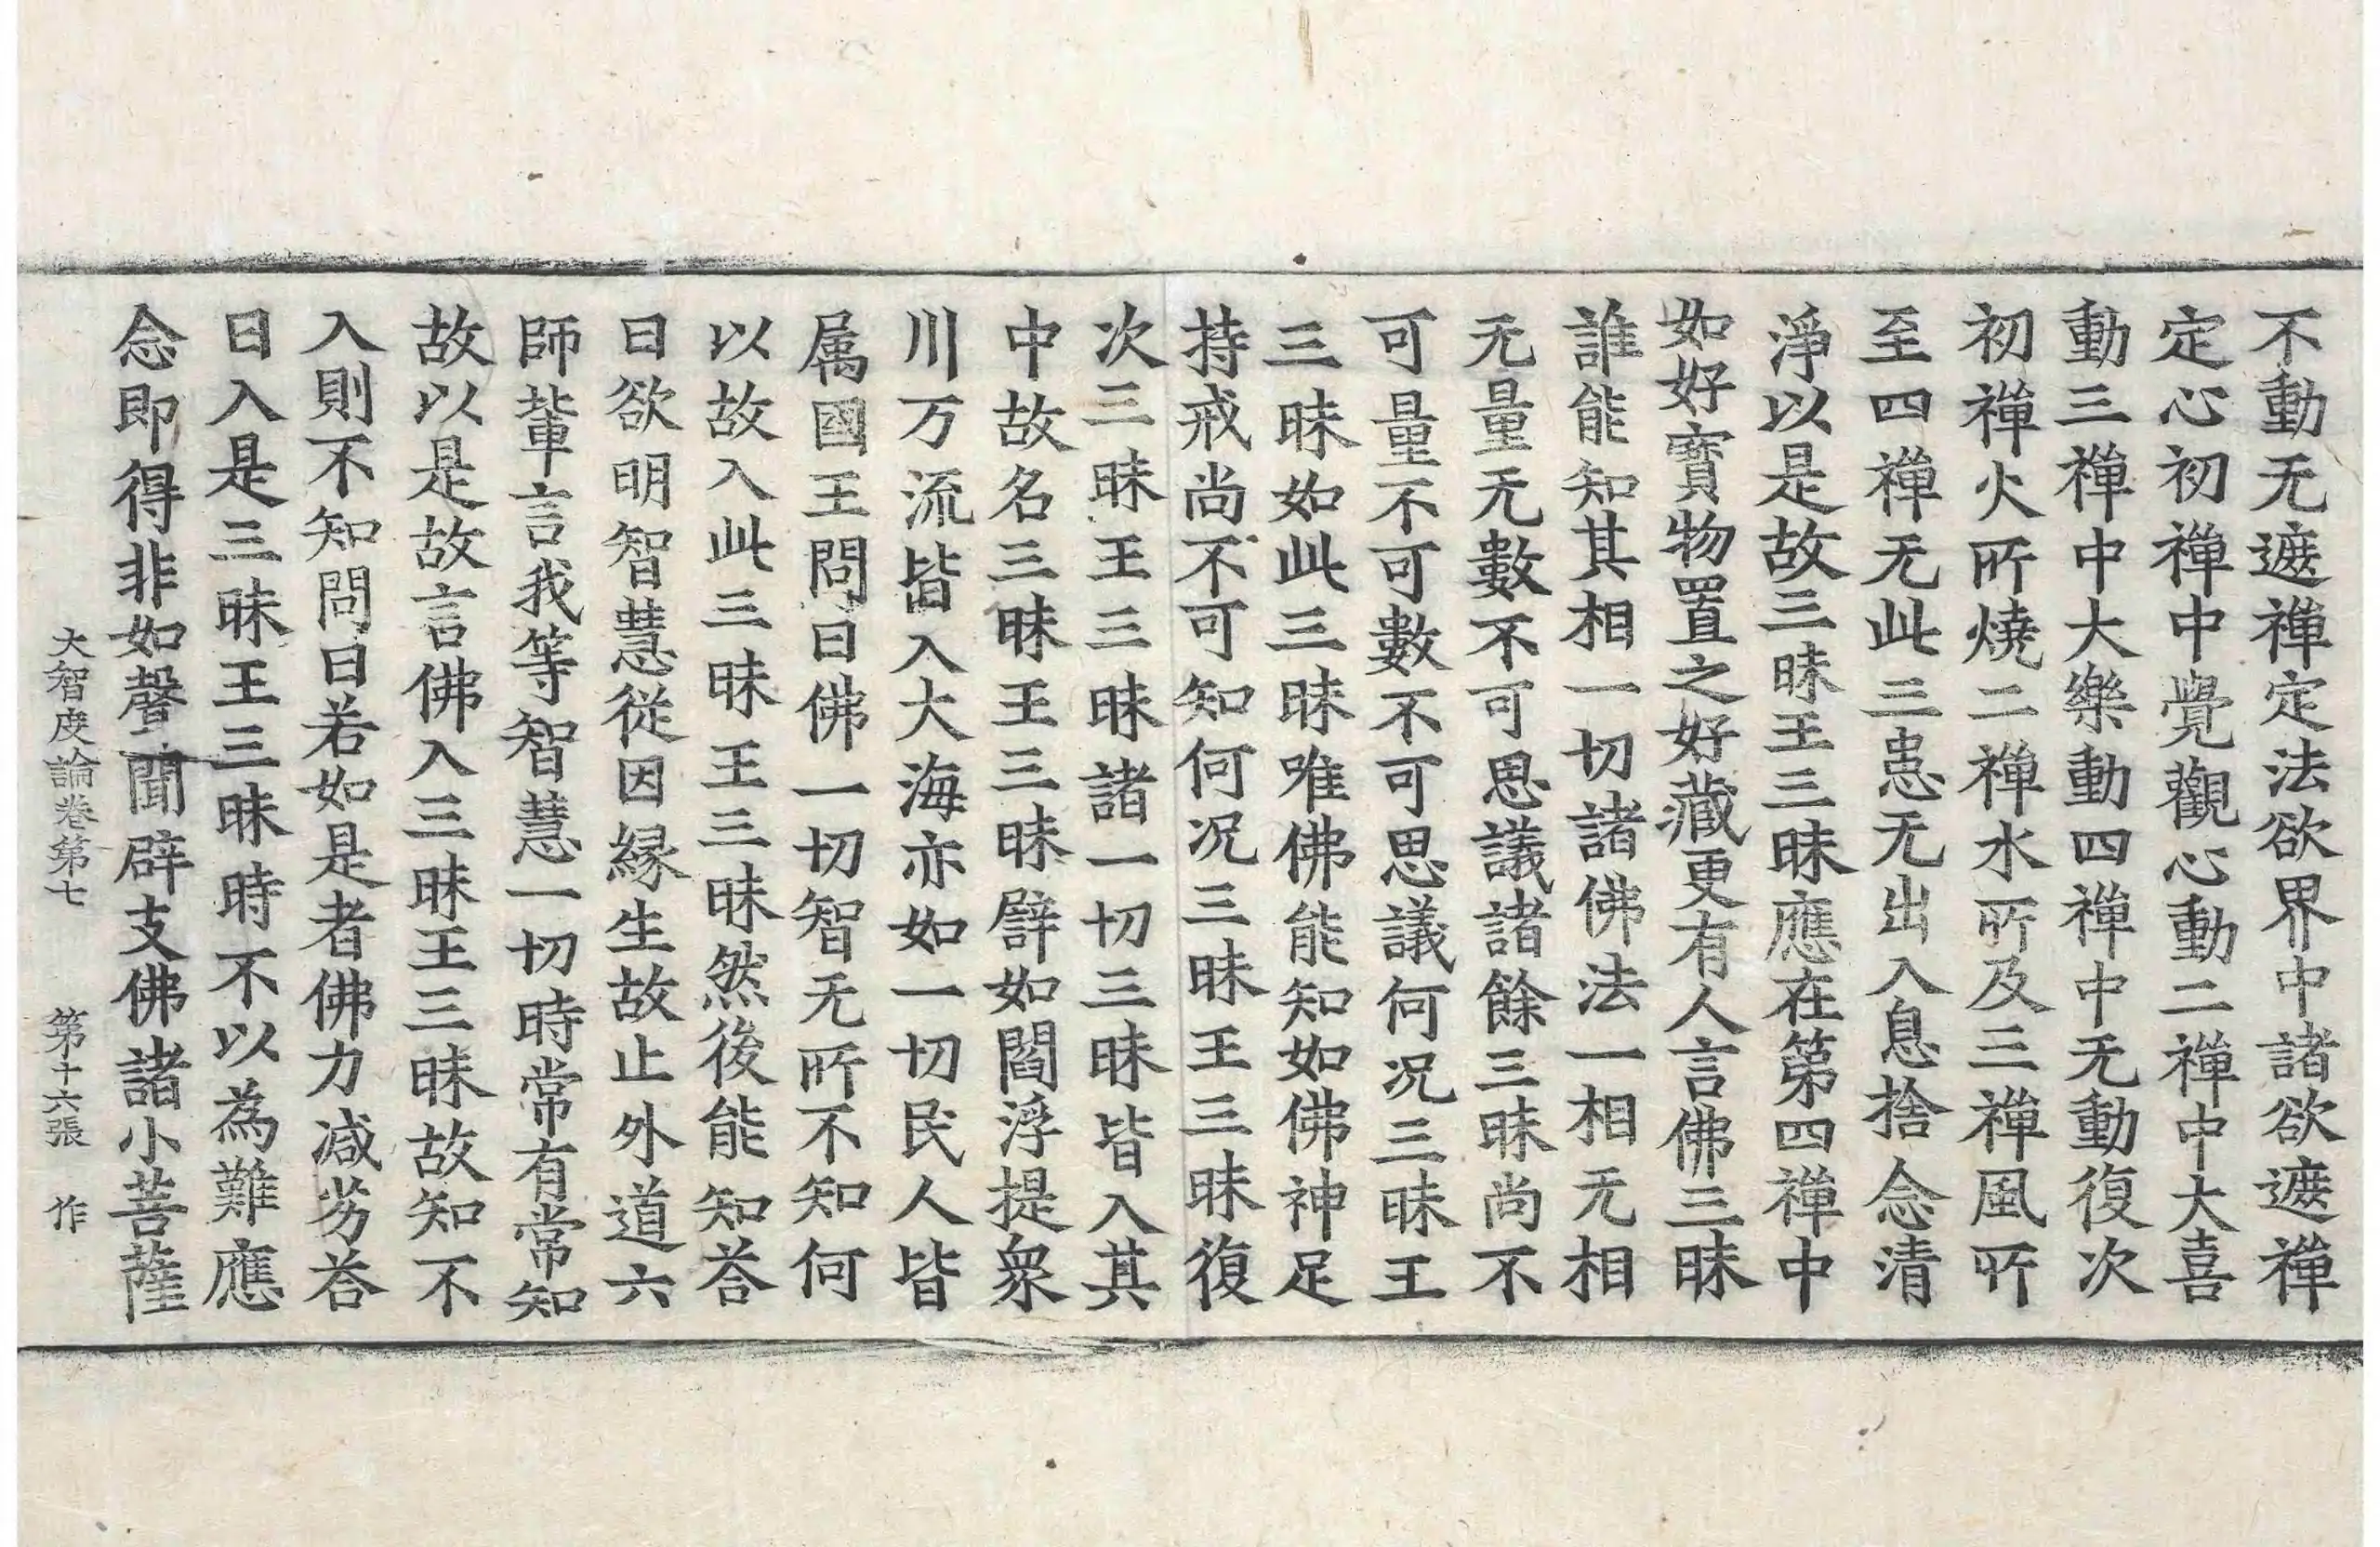 不動无遮禅定法欲界中諸欲遮禅
定心初禅中覺觀心動二禅中大喜
動三禅中大樂動四禅中无動復次
初禅火所燒二禅水所及三禅風所
至四禅无此三患无出入息捨念清
淨以是故三昧王三昧應在第四禅中
如好寳物置之好藏更有人言佛三昧
誰能知其相一切諸佛法一相无相
无量无數不可思議諸餘三昧尚不
可量不可數不可思議何况三昧王
三昧如此三昧唯佛能知如佛神足
持戒尚不可知何况三昧王三昧復
次三昧王三昧諸一切三昧皆入其
中故名三昧王三昧譬如閻浮提衆
川万流皆入大海亦如一切民人皆
属國王問曰佛一切智无所不知何
以故入此三昧王三昧然後能知荅
曰欲明智慧從因縁生故止外道六
師軰言我等智慧一切時常有常知
故以是故言佛入三昧王三昧故知不
入則不知問曰若如是者佛力减劣荅
曰入是三昧王三昧時不以為難應
念即得非如聲聞辟支佛諸小菩薩
大智度論卷第七　第十六張　作